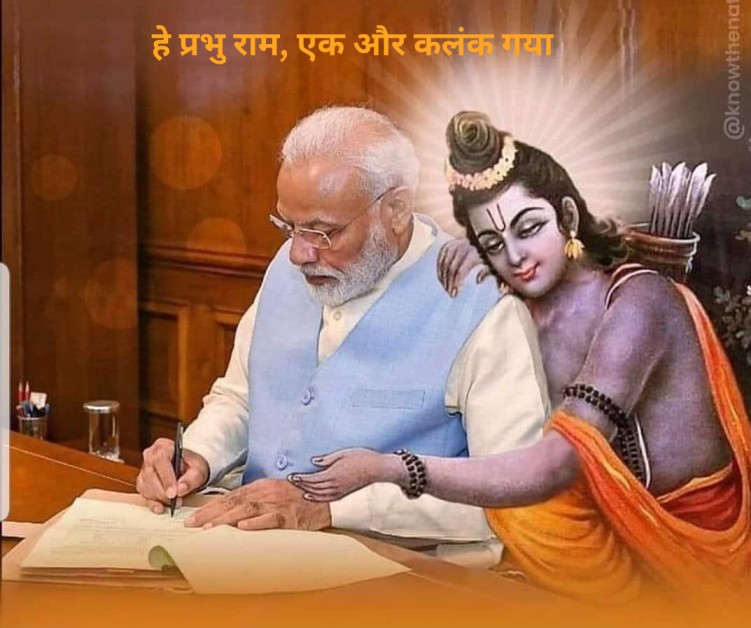 हे प्रभु राम, एक और कलंक गया
@knowthenat